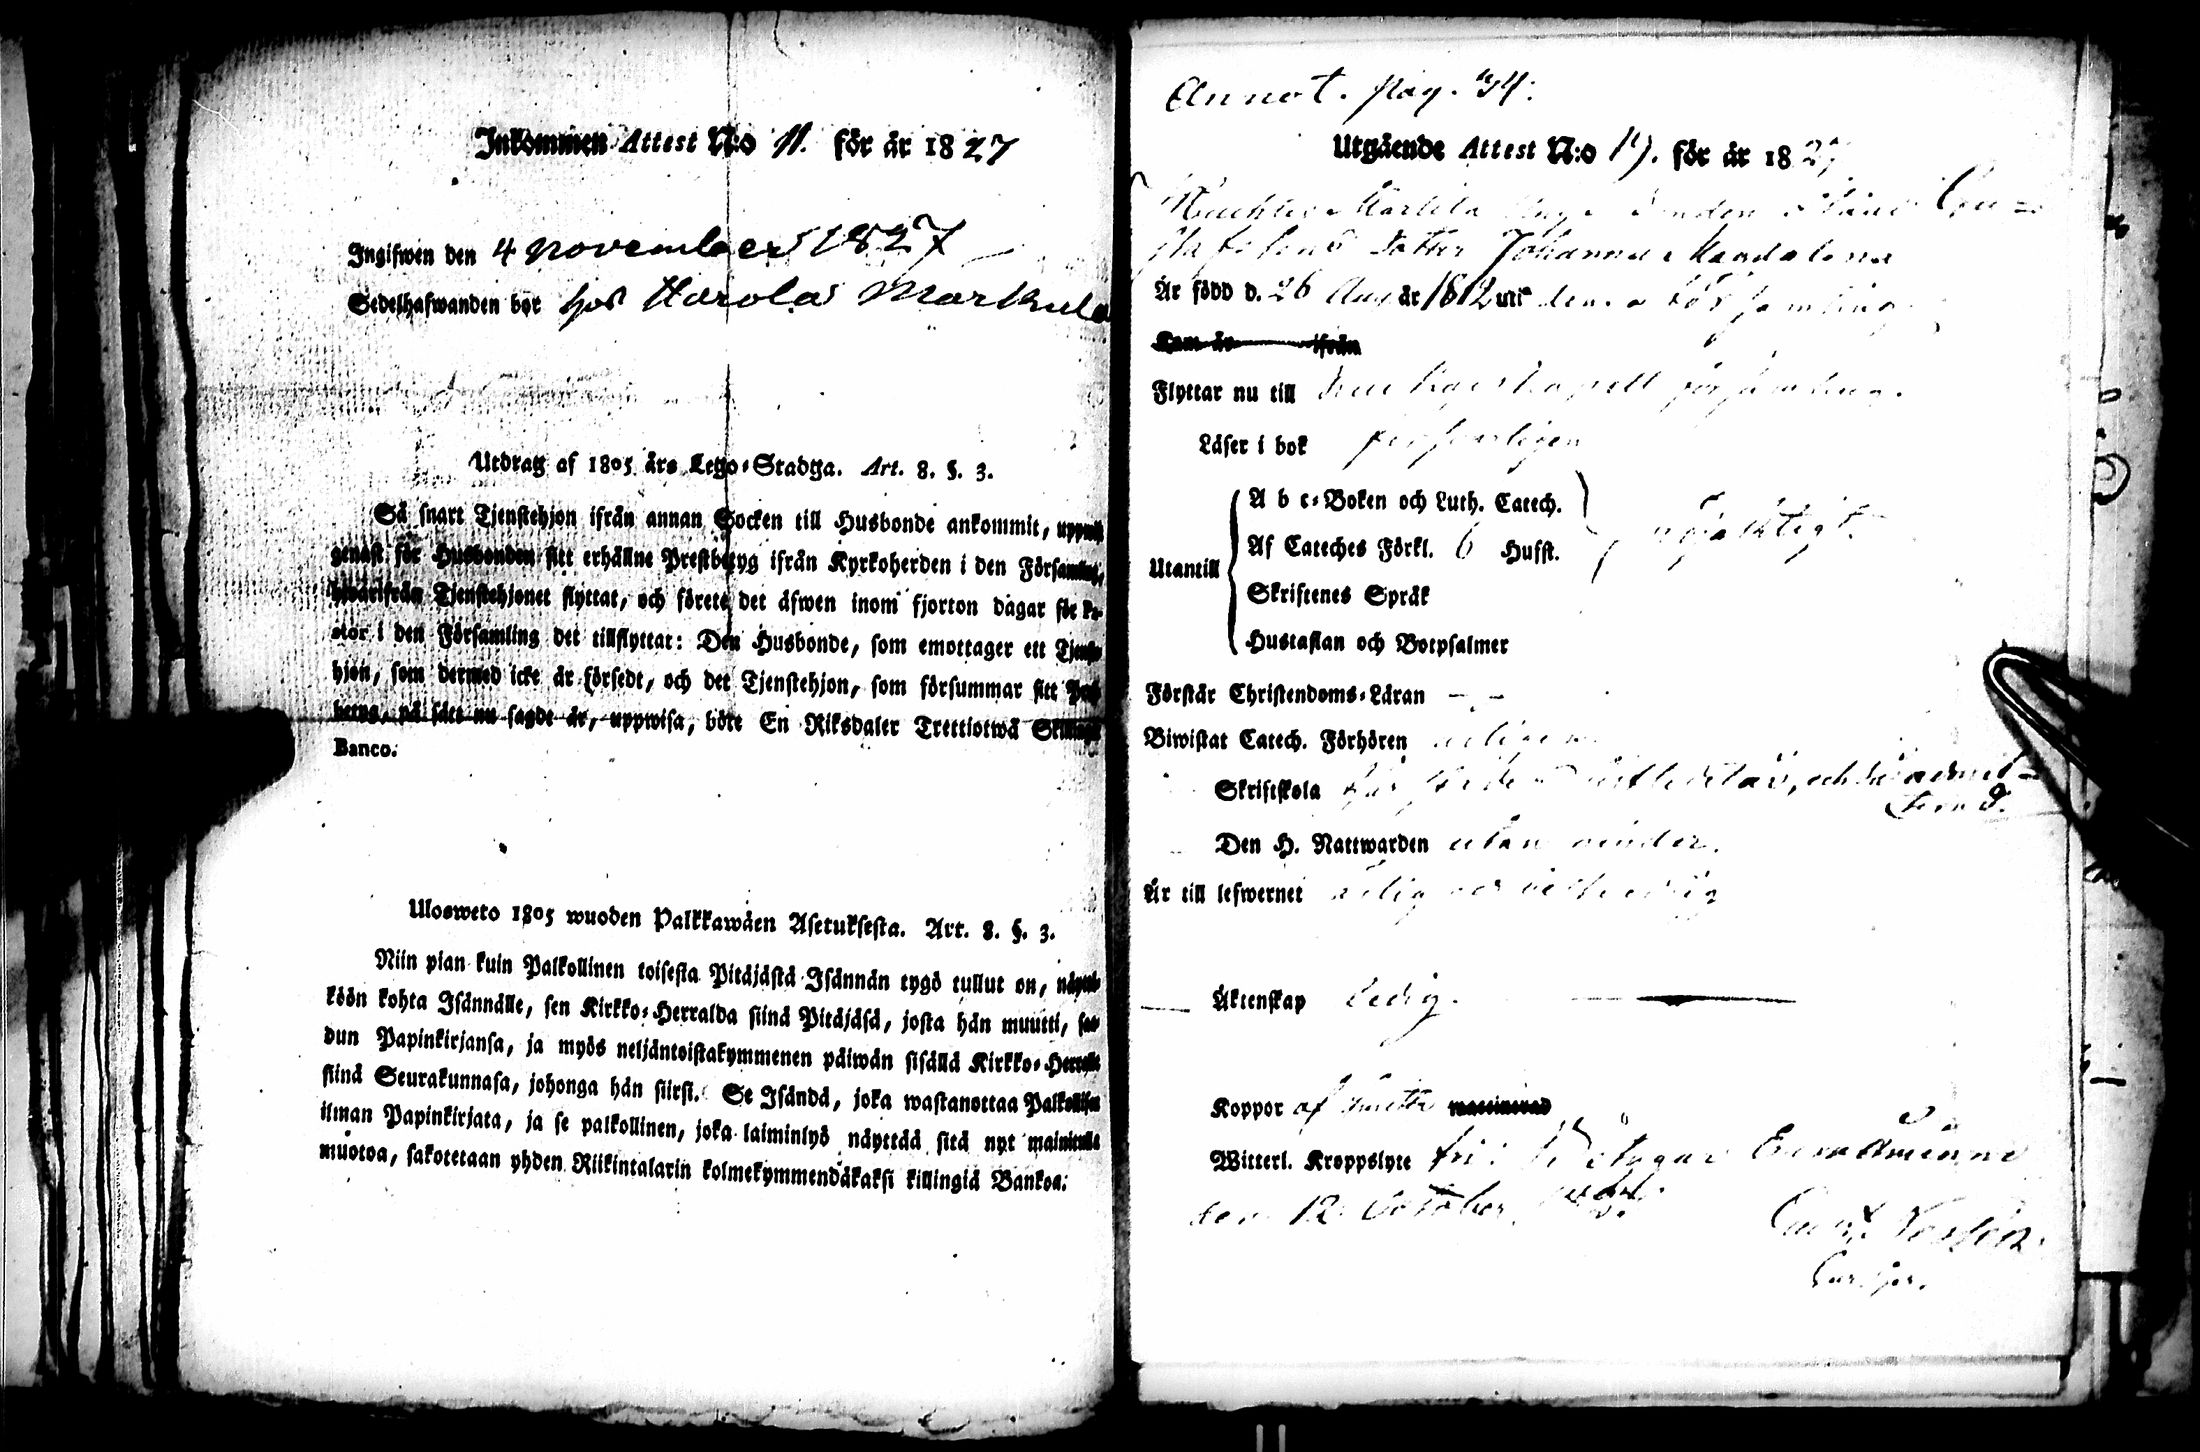 Inkommen Attest N:o 11. för år 1827
Ingifwen den 4 november 1827
Sedelhafwanden bor hos Harola Markula
Utdrag af 1805 års Lego-Stadga. Art. 8. §. 3.
Så snart Tjenstehjon ifrån annan Socken till Husbonde ankommit, uppwise
genast för Husbonden sitt erhållne Prestbetyg ifrån Kyrkoherden i den Församling,
hwarifrån Tjenstehjonet flyttat, och förete det äfwen inom fjorton dagar för Pa-
stor i den Församling det tillflyttat: Den Husbonde, som emottager ett Tjenste-
hjon, som dermed icke är försedt, och det Tjenstehjon, som försummar sitt Prest-
betyg, på sätt nu sagdt är, uppwisa, böte En Riksdaler Trettiotwå Skillingar
Banco.
Ulosweto 1805 wuoden Palkkawäen Asetuksesta. Art. 8. §. 3.
Niin pian kuin Palkollinen toisesta Pitäjästä Isännän tygö tullut on, näyttä-
köön kohta Isännälle, sen Kirkko-Herralda siinä Pitäjäsä, josta hän muutti, saa-
dun Papinkirjansa, ja myös neljäntoistakymmenen päiwän sisällä Kirkko-Herralle
siinä Seurakunnasa, johonga hän siirsi. Se Isändä, joka wastanottaa Palkollisen
ilman Papinkirjata, ja se palkollinen, joka laiminlyö näyttää sitä nyt mainitulla
muotoa, sakotetaan yhden Riikintalarin kolmekymmendäkaksi killingiä Bankoa.
Annot. pag. 34.
Utgående Attest N:o 19. för år 1827
dotter Johanna Magdalena
Är född d. 26 Aug. år 1812 uti denna församling
Kom år ifrån
Flyttar nu till kapell församling.
Läser i bok försvarligen
A b c-Boken och Luth. Catech.
Af Cateches Förkl. 6 Hufst. nöjaktigt.
Utantill
Skriftenes Språk
Hustaflan och Botpsalmer
Förstår Christendoms-Läran - -
Biwistat Catech. Förhören årligen
Skriftskola
Den H. Nattwarden utan hinder.
Är till lefwernet ärlig och
Äktenskap Ledig.
Koppor af vaccinerad
Witterl. Kroppslyte fri. Betygar
den 12 October